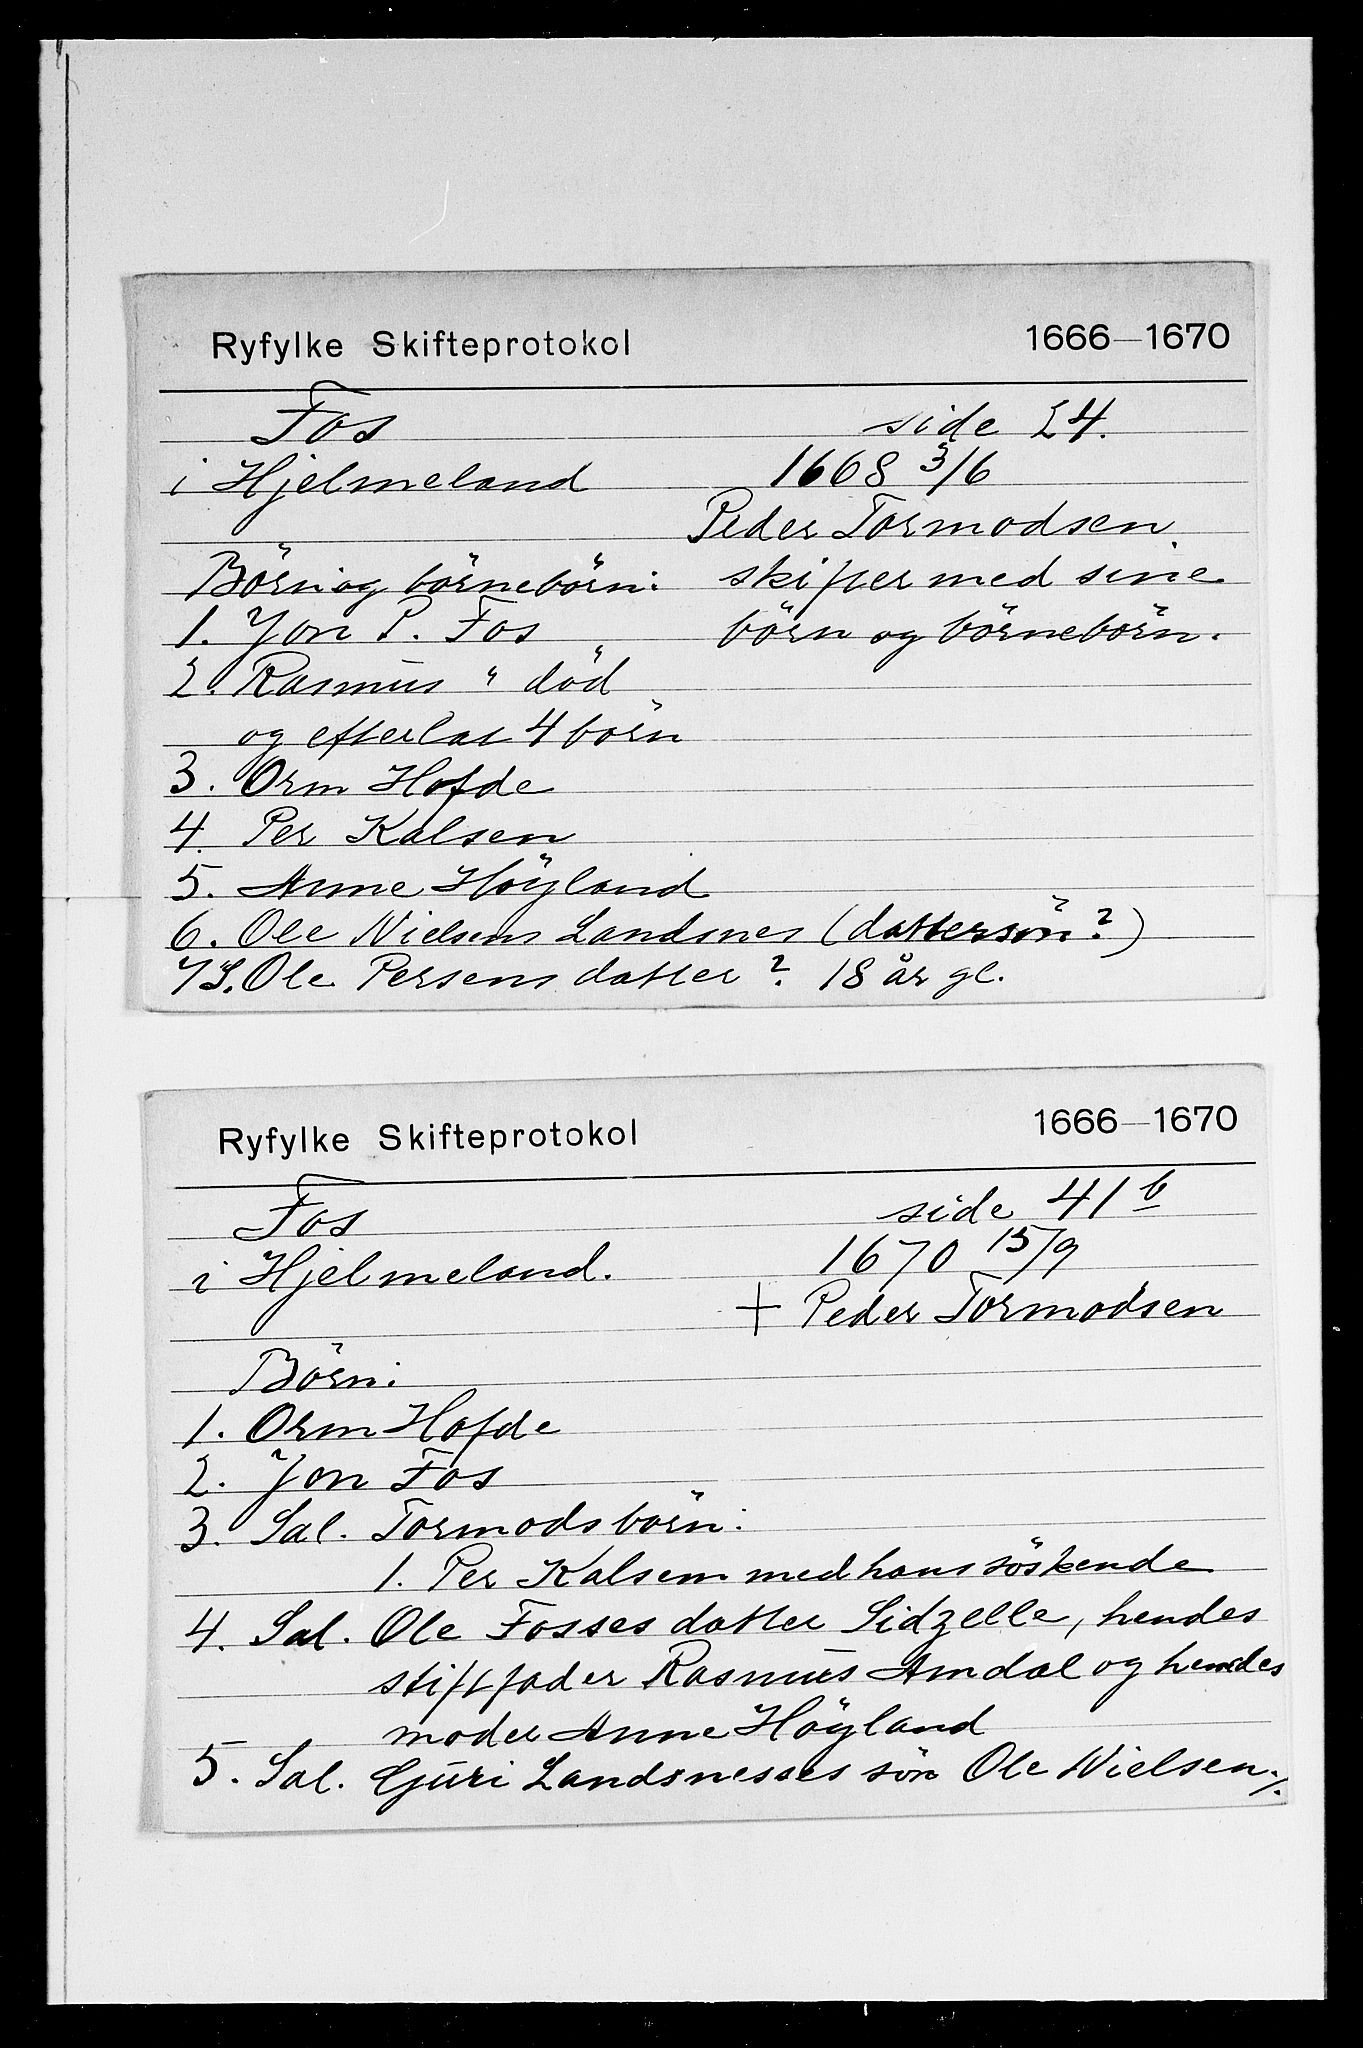 Ryfylke Skifteprotokol 1666—1670
Fos side 24.
i Hjelmeland 1668 3/6
Peder Tormodsen
Börn og börnebörn: skifter med sine
1. Jon P. Fos börn og börnebörn.
2. Rasmus " död
og efterlat 4 börn
3. Orm Hofde
4. Per Kalsen
5. Anne Höyland
6. Ole Nielsens Landsnes (dattersön?)
7 S. Ole Persens datter? 18 år gl.
Ryfylke Skifteprotokol 1666—1670
Fos side 41 b
i Hjelmeland. 1670 15/9
+ Peder Tormodsen
Börn:
1. Orm Hofde
2. Jon Fos
3. Sal. Tormods börn:
1. Per Kalsem med hans söskende
4. Sal. Ole Fosses datter Sidzelle, hendes
stiffader Rasmus Amdal og hendes
moder Anne Höyland
5. Sal. Guri Landsnesses sön Ole Nielsen./.